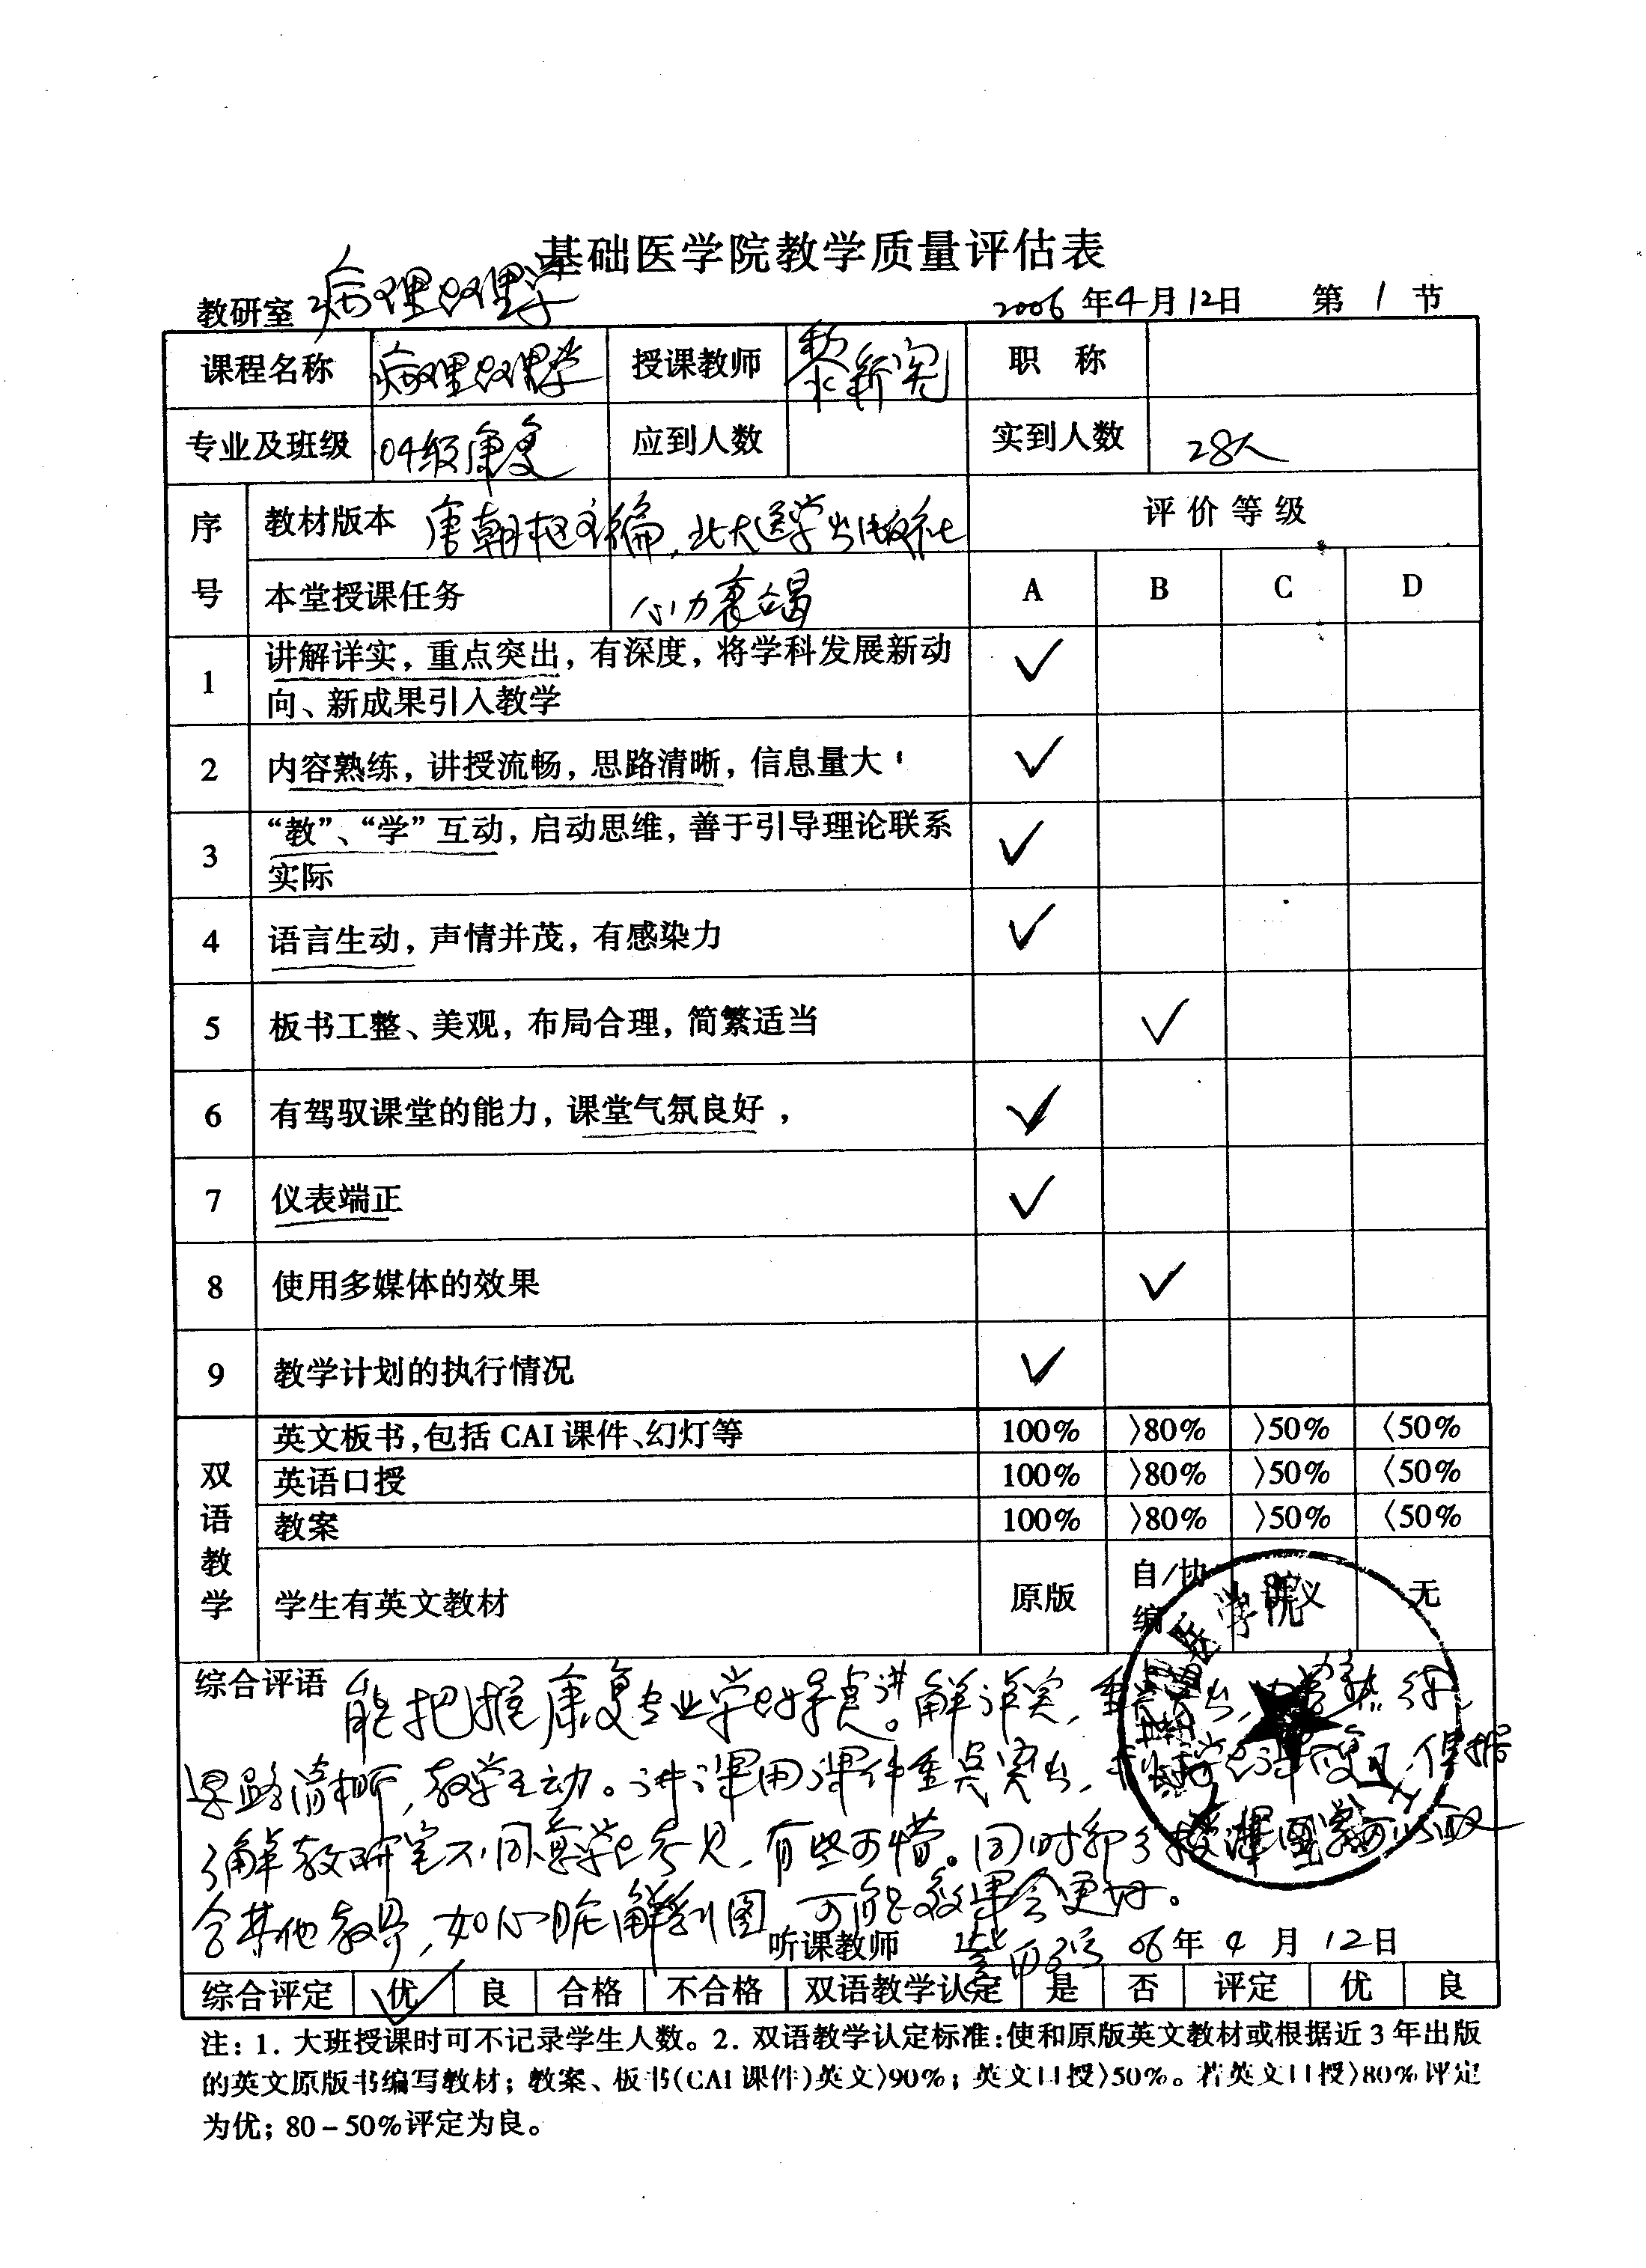 基础医学院教学质量评估表
教研室 病理生理学 2006年4月12日 第1节
课程名称 病理生理学 授课教师 职称
专业及班级 04级康复 应到人数 实到人数 28人
序号 教材版本 唐朝枢主编,北大医学出版社 评价等级
本堂授课任务 心力衰竭 A B C D
1 讲解详实,重点突出,有深度,将学科发展新动
向、新成果引入教学 ✓
2 内容熟练,讲授流畅,思路清晰,信息量大 ✓
3 “教”、“学”互动,启动思维,善于引导理论联系
实际 ✓
4 语言生动,声情并茂,有感染力 ✓
5 板书工整、美观,布局合理,简繁适当 ✓
6 有驾驭课堂的能力,课堂气氛良好, ✓
7 仪表端正 ✓
8 使用多媒体的效果 ✓
9 教学计划的执行情况 ✓
双语教学
英文板书,包括CAI课件、幻灯等 100% 〉80% 〉50% 〈50%
英语口授 100% 〉80% 〉50% 〈50%
教案 100% 〉80% 〉50% 〈50%
学生有英文教材 原版 自/协编 讲义 无
综合评语 能把握康复专业学生特点。讲解详实,重点突出,内容熟练
思路清晰,教学互动。讲课用课件重点突出,利于学生课后复习,但据
了解教研室不同意学生考贝,有些可惜。同时部分授课图案可以取
舍其他教具,如心脏解剖图 可能效果会更好。
听课教师 06年4月12日
综合评定 优 ✓ 良 合格 不合格 双语教学认定 是 否 评定 优 良
注:1. 大班授课时可不记录学生人数。2. 双语教学认定标准:使和原版英文教材或根据近3年出版
的英文原版书编写教材;教案、板书(CAI课件)英文〉90%;英文口授〉50%。若英文口授〉80%评定
为优;80-50%评定为良。